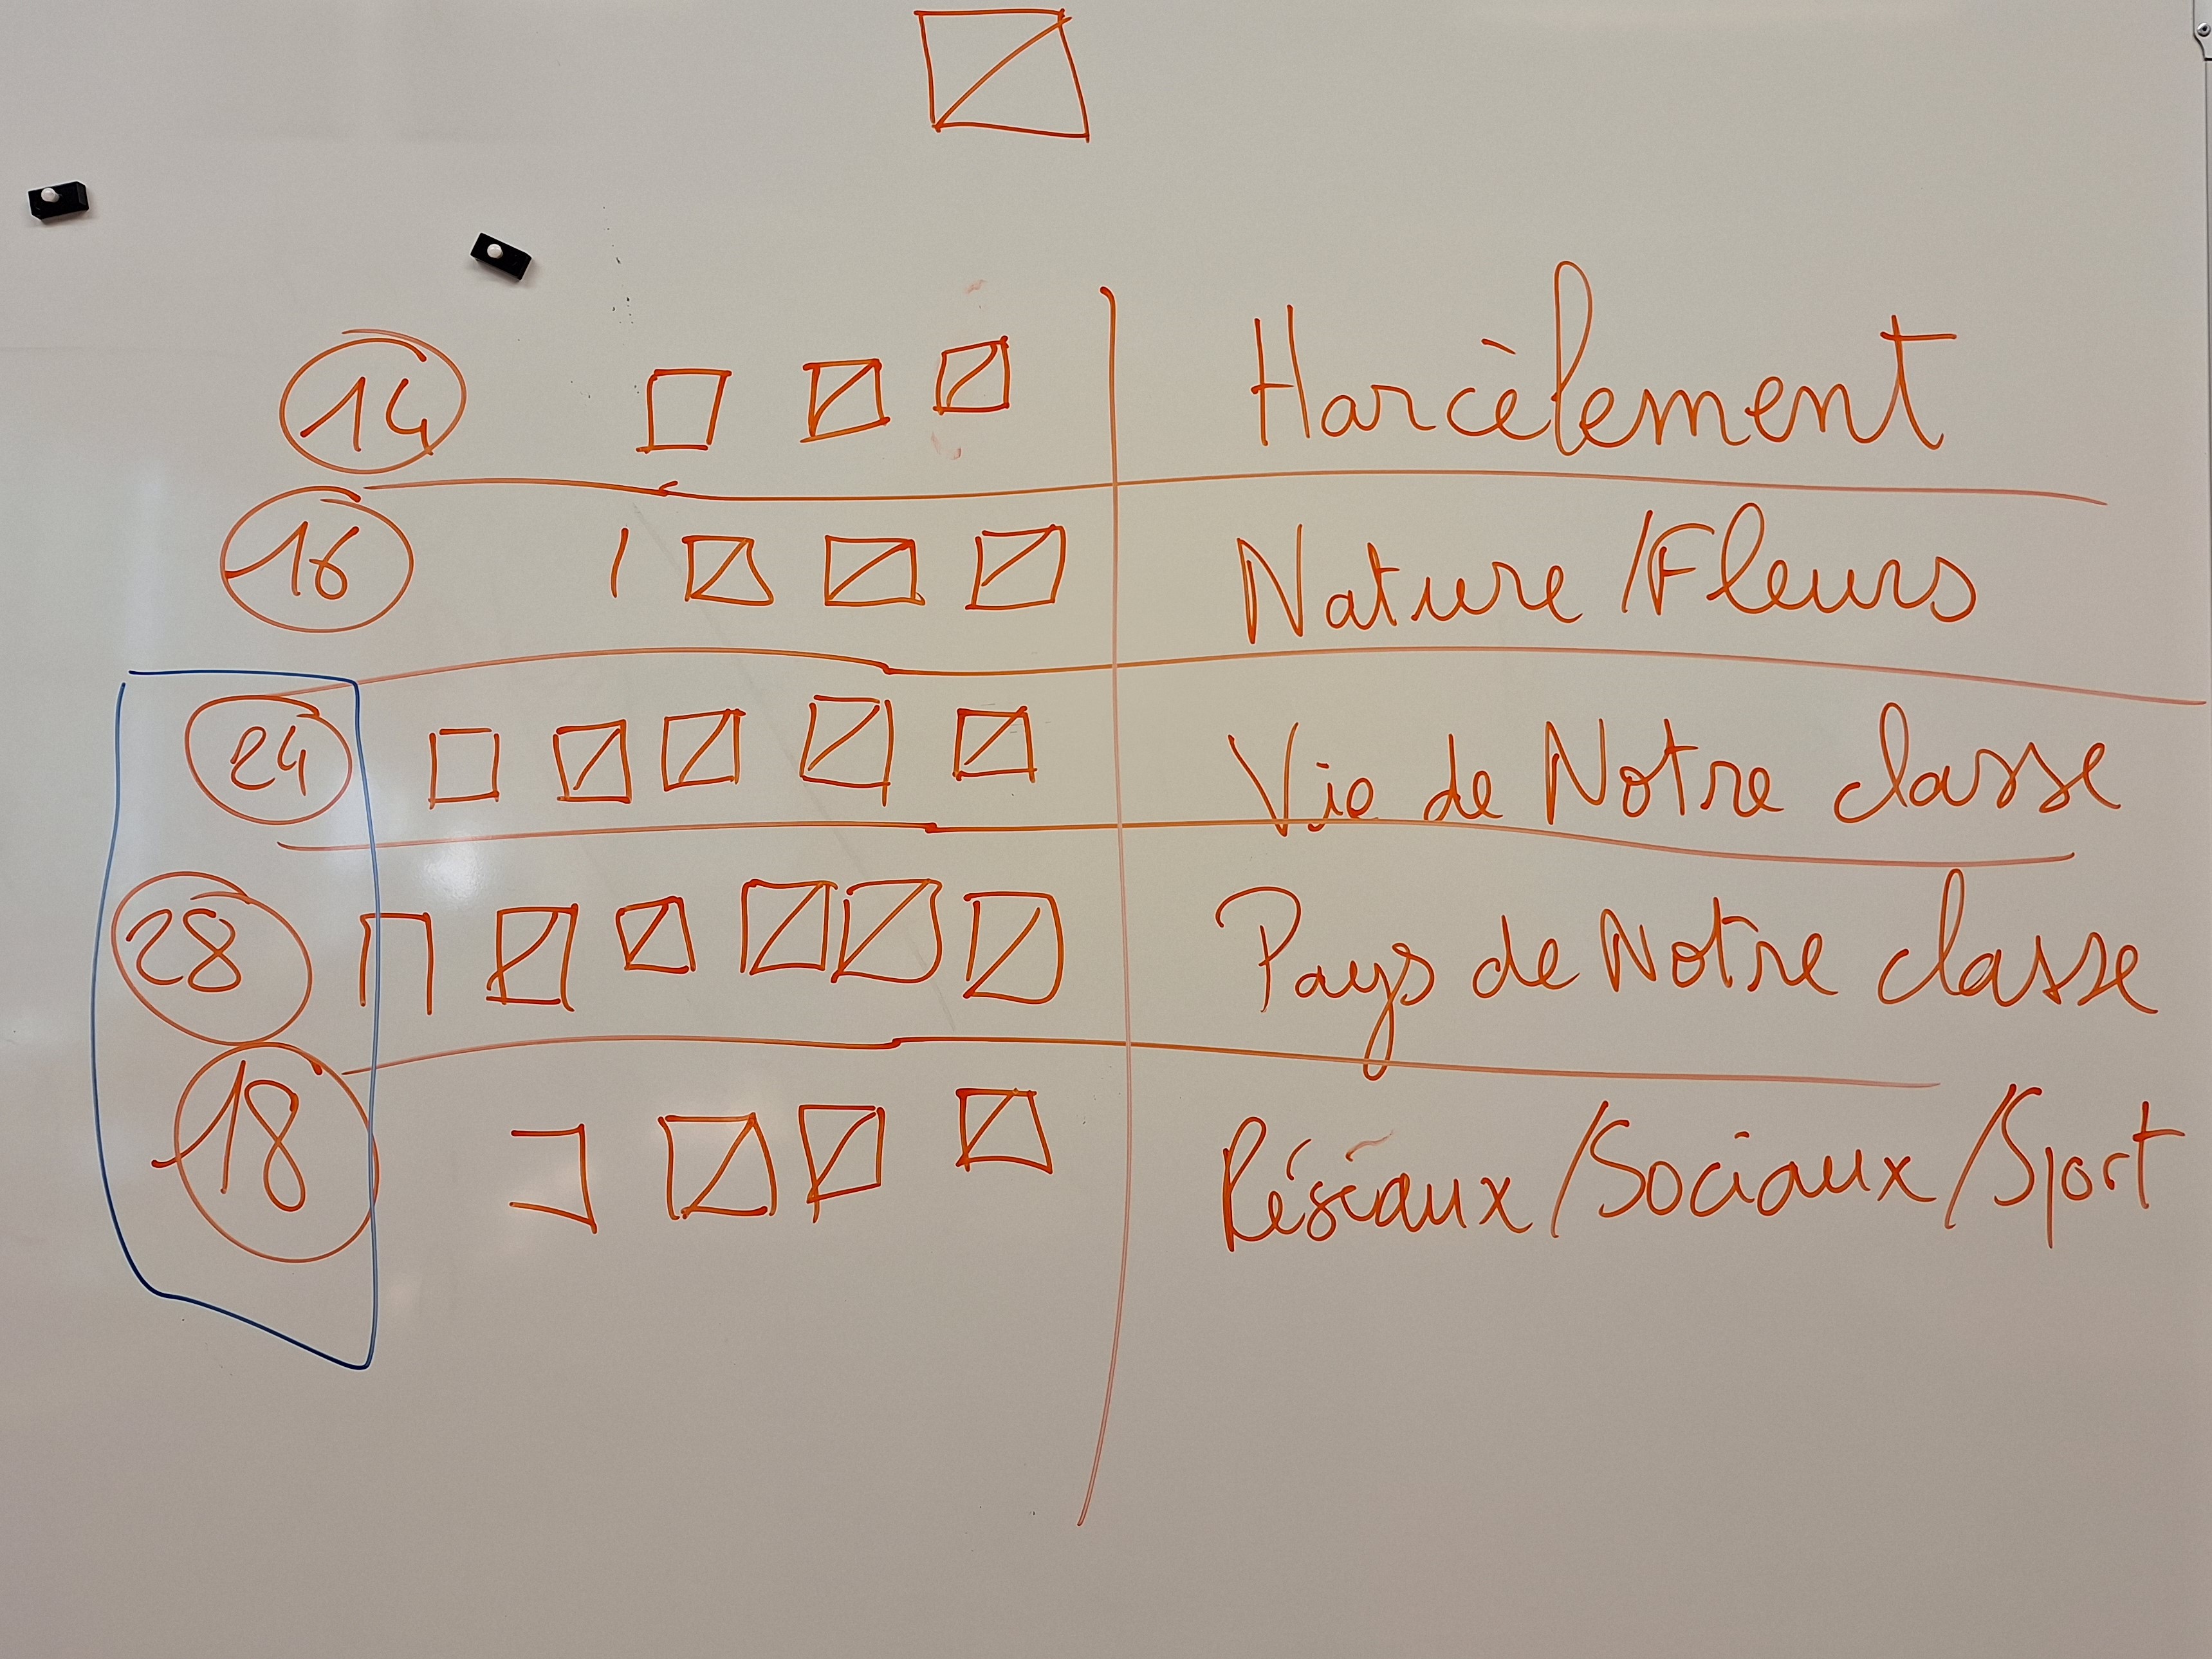 14 Harcèlement
16 Nature / Fleurs
24 Vie de Notre classe
28 Pays de Notre classe
18 Réséaux / Sociaux / Sport